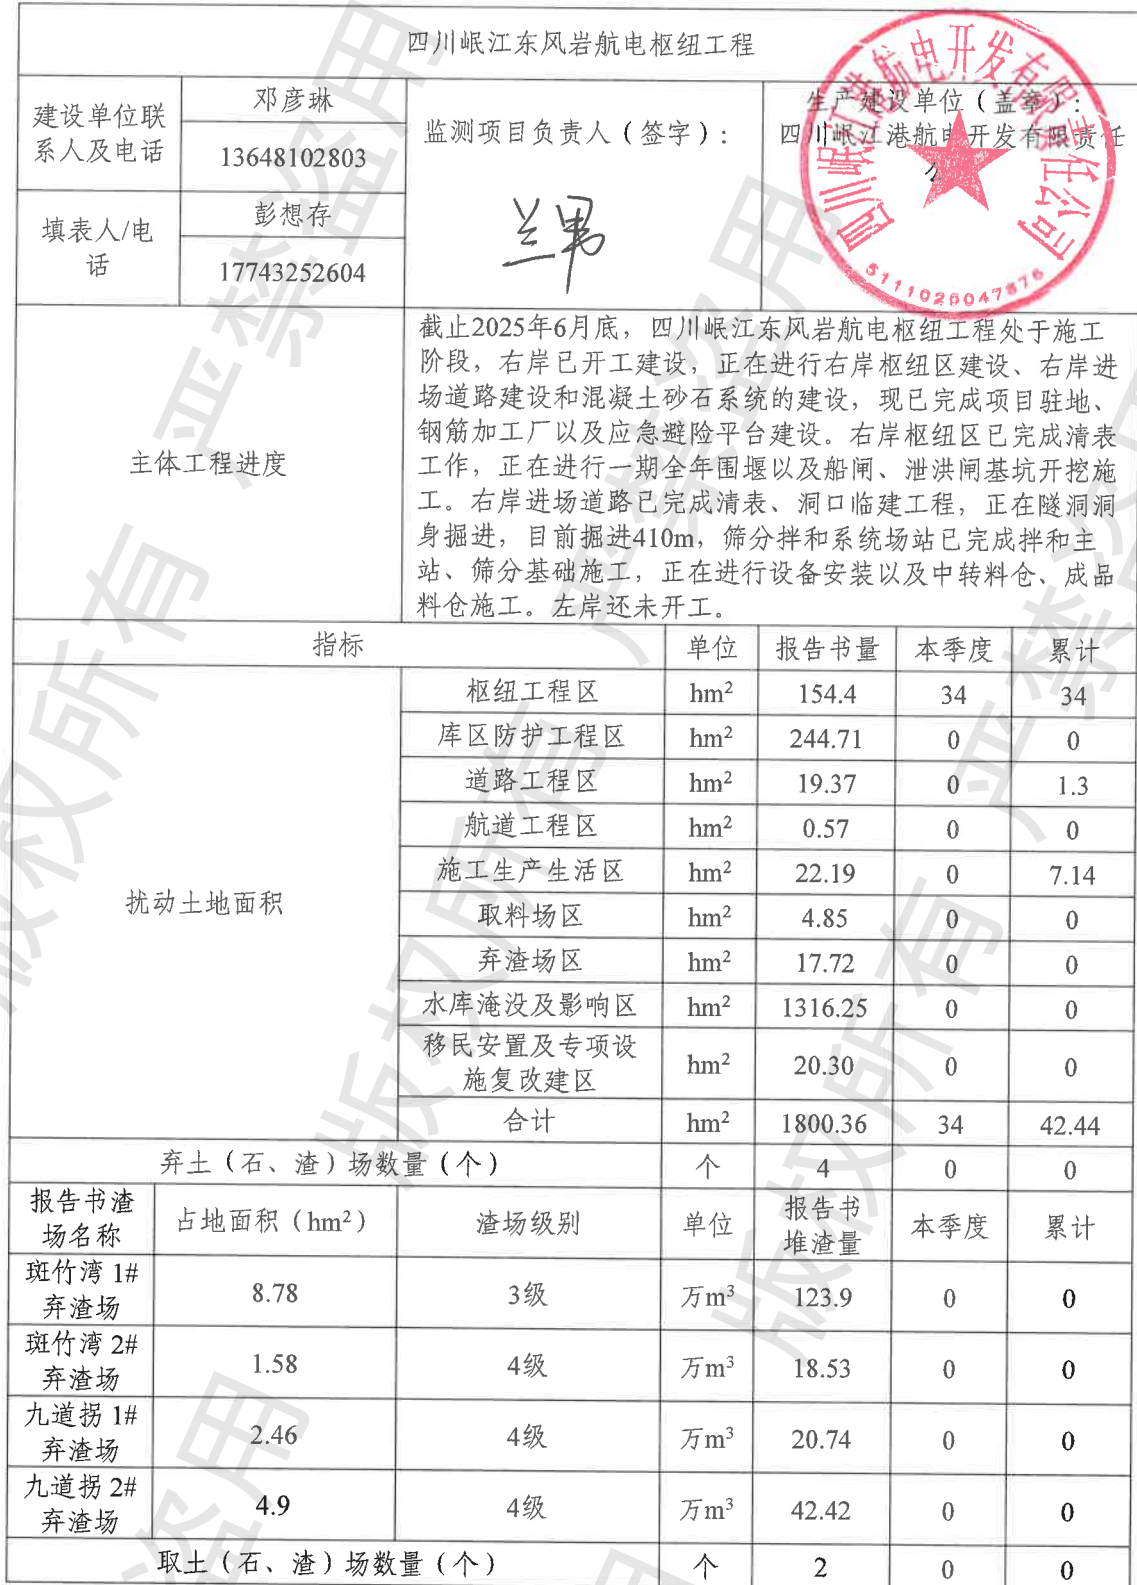 四川岷江东风岩航电枢纽工程
建设单位联
系人及电话
邓彦琳
13648102803
监测项目负责人（签字）：
生产建设单位（盖章）：
四川岷江港航电开发有限责任
公
填表人/电
话
彭想存
17743252604
四川岷江港航电开发有限责任公司
主体工程进度
截止2025年6月底，四川岷江东风岩航电枢纽工程处于施工
阶段，右岸已开工建设，正在进行右岸枢纽区建设、右岸进
场道路建设和混凝土砂石系统的建设，现已完成项目驻地、
钢筋加工厂以及应急避险平台建设。右岸枢纽区已完成清表
工作，正在进行一期全年围堰以及船闸、泄洪闸基坑开挖施
工。右岸进场道路已完成清表、洞口临建工程，正在隧洞洞
身掘进，目前掘进410m，筛分拌和系统场站已完成拌和主
站、筛分基础施工，正在进行设备安装以及中转料仓、成品
料仓施工。左岸还未开工。
指标 单位 报告书量 本季度 累计
扰动土地面积
枢纽工程区 hm² 154.4 34 34
库区防护工程区 hm² 244.71 0 0
道路工程区 hm² 19.37 0 1.3
航道工程区 hm² 0.57 0 0
施工生产生活区 hm² 22.19 0 7.14
取料场区 hm² 4.85 0 0
弃渣场区 hm² 17.72 0 0
水库淹没及影响区 hm² 1316.25 0 0
移民安置及专项设
施复改建区 hm² 20.30 0 0
合计 hm² 1800.36 34 42.44
弃土（石、渣）场数量（个） 个 4 0 0
报告书渣
场名称 占地面积（hm²） 渣场级别 单位 报告书
堆渣量 本季度 累计
斑竹湾 1#
弃渣场 8.78 3级 万m³ 123.9 0 0
斑竹湾 2#
弃渣场 1.58 4级 万m³ 18.53 0 0
九道拐 1#
弃渣场 2.46 4级 万m³ 20.74 0 0
九道拐 2#
弃渣场 4.9 4级 万m³ 42.42 0 0
取土（石、渣）场数量（个） 个 2 0 0
版权所有 严禁盗用
版权所有 严禁盗用
版权所有 严禁盗用
盗用